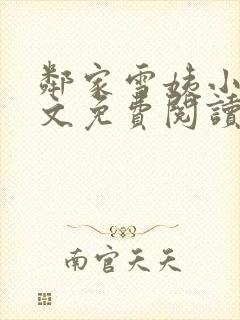 鄰家雪姨小
文免費閱讀
南宮天天